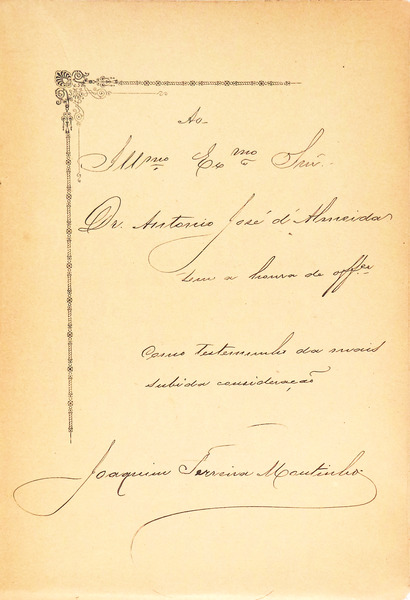 Ao
Illmo. Exmo. Snr.
Dr. Antonio José d'Almeida
tem a honra de offer
como testemunho da mais
subida consideração
Joaquim Ferreira Moutinho